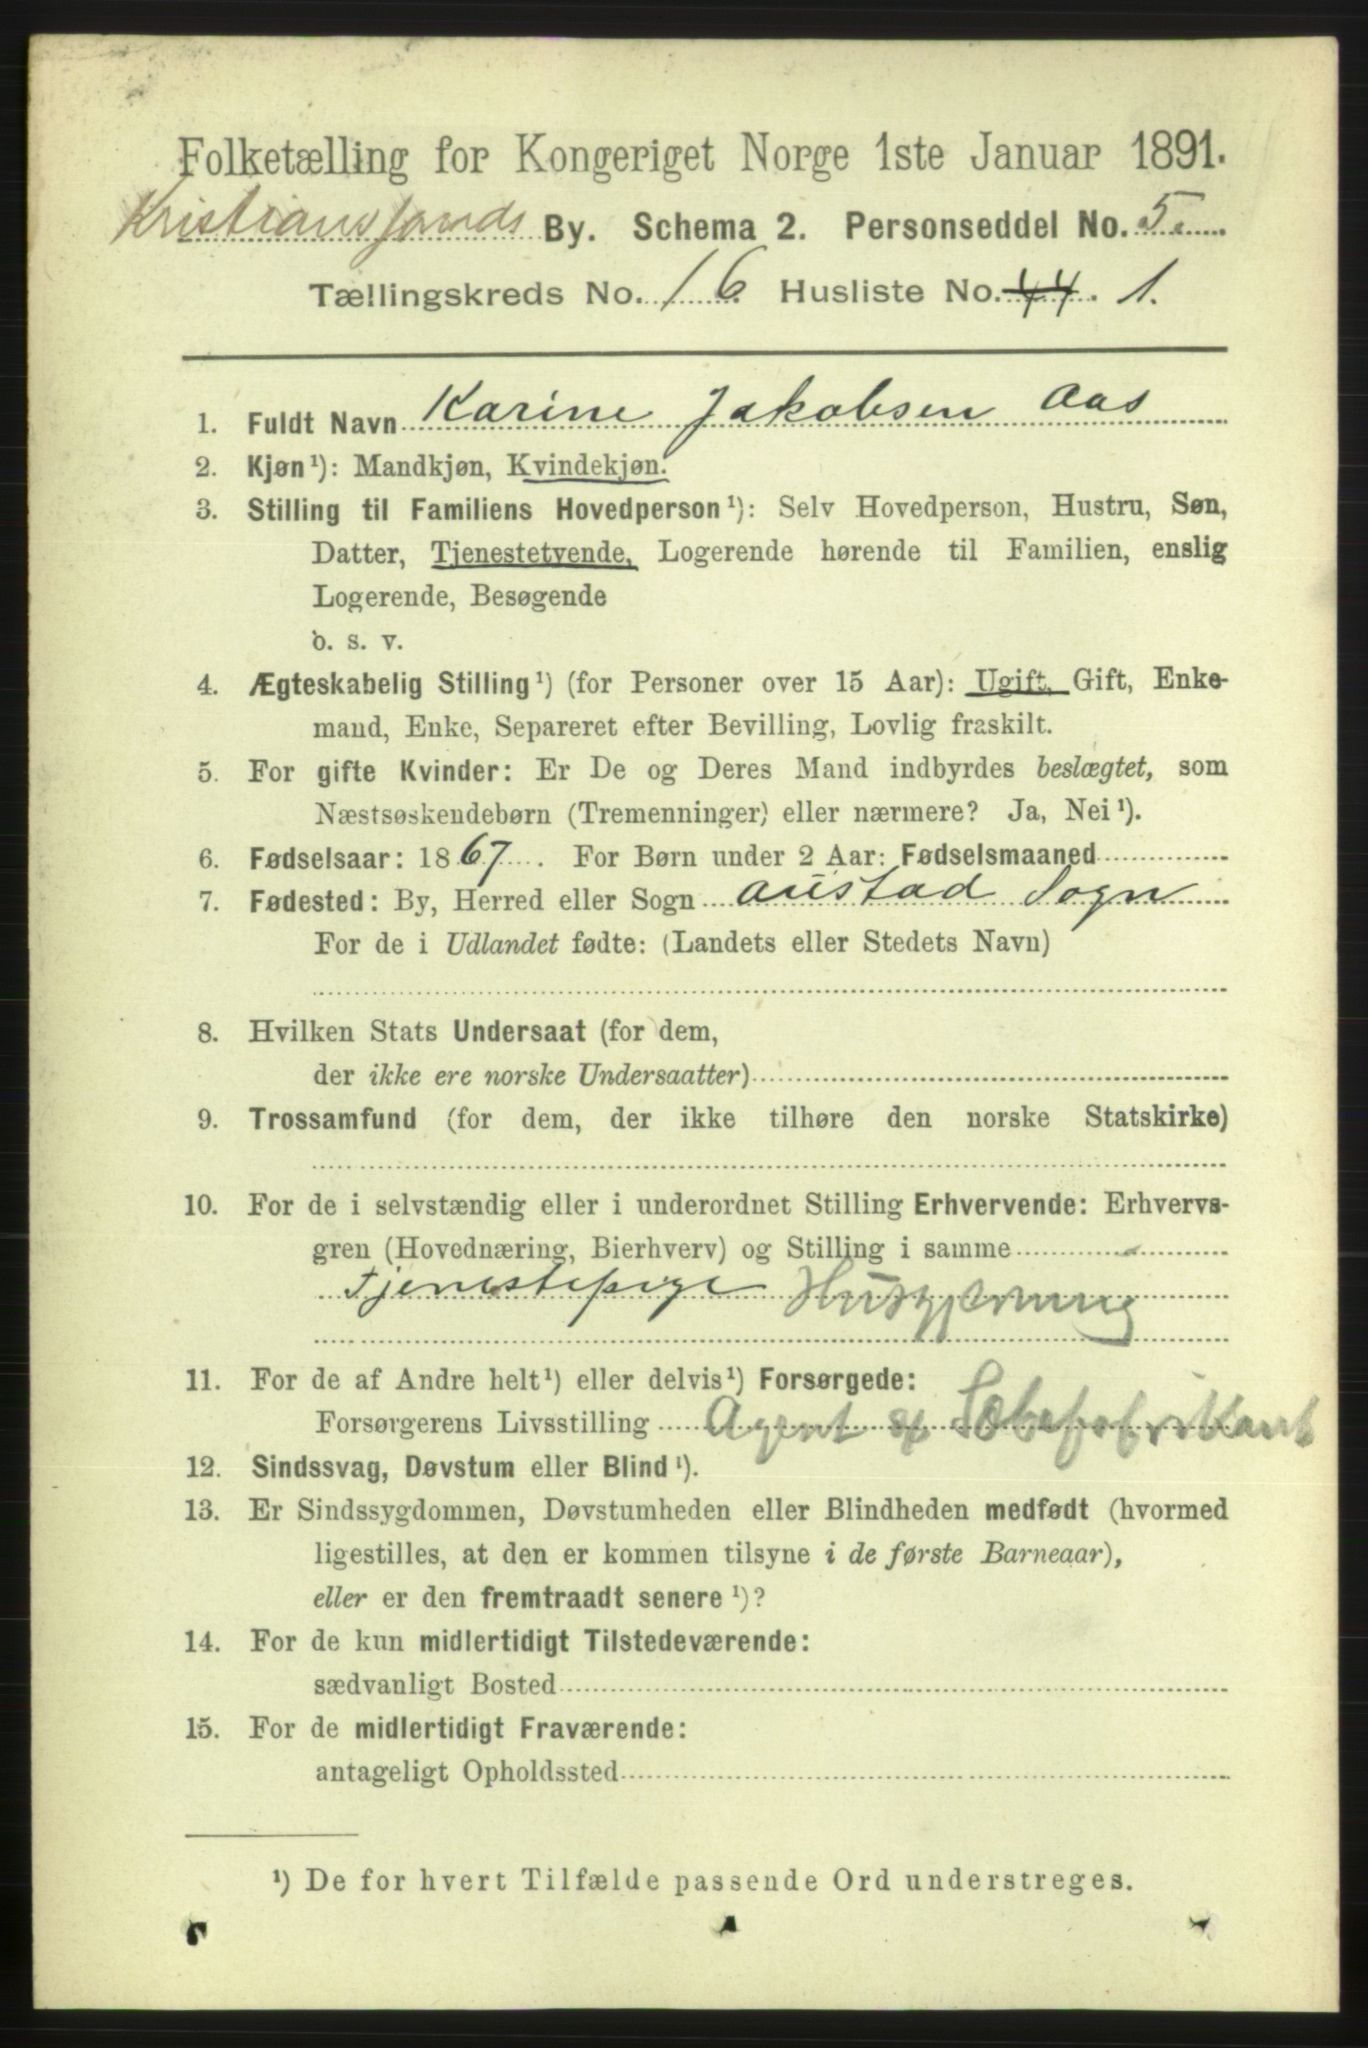 Folketælling for Kongeriget Norge 1ste Januar 1891.
Kristianssands By. Schema 2. Personseddel No. 5.
Tællingskreds No. 16 Husliste No. 44. 1.
1. Fuldt Navn Karine Jakobsen Aas
2. Kjøn¹): Mandkjøn, Kvindekjøn.
3. Stilling til Familiens Hovedperson¹): Selv Hovedperson, Hustru, Søn,
Datter, Tjenestetyende, Logerende hørende til Familien, enslig
Logerende, Besøgende
o. s. v.
4. Ægteskabelig Stilling¹) (for Personer over 15 Aar): Ugift, Gift, Enke-
mand, Enke, Separeret efter Bevilling, Lovlig fraskilt.
5. For gifte Kvinder: Er De og Deres Mand indbyrdes beslægtet, som
Næstsøskendebørn (Tremenninger) eller nærmere? Ja, Nei¹).
6. Fødselsaar: 1867. For Børn under 2 Aar: Fødselsmaaned
7. Fødested: By, Herred eller Sogn Austad Sogn
For de i Udlandet fødte: (Landets eller Stedets Navn)
8. Hvilken Stats Undersaat (for dem,
der ikke ere norske Undersaatter)
9. Trossamfund (for dem, der ikke tilhøre den norske Statskirke)
10. For de i selvstændig eller i underordnet Stilling Erhvervende: Erhvervs-
gren (Hovednæring, Bierhverv) og Stilling i samme
Tjenestepige Husgjerning
11. For de af Andre helt¹) eller delvis¹) Forsørgede:
Forsørgerens Livsstilling Agent & Sæbefabrikant
12. Sindssvag, Døvstum eller Blind¹).
13. Er Sindssygdommen, Døvstumheden eller Blindheden medfødt (hvormed
ligestilles, at den er kommen tilsyne i de første Barneaar),
eller er den fremtraadt senere¹)?
14. For de kun midlertidigt Tilstedeværende:
sædvanligt Bosted
15. For de midlertidigt Fraværende:
antageligt Opholdssted
¹) De for hvert Tilfælde passende Ord understreges.